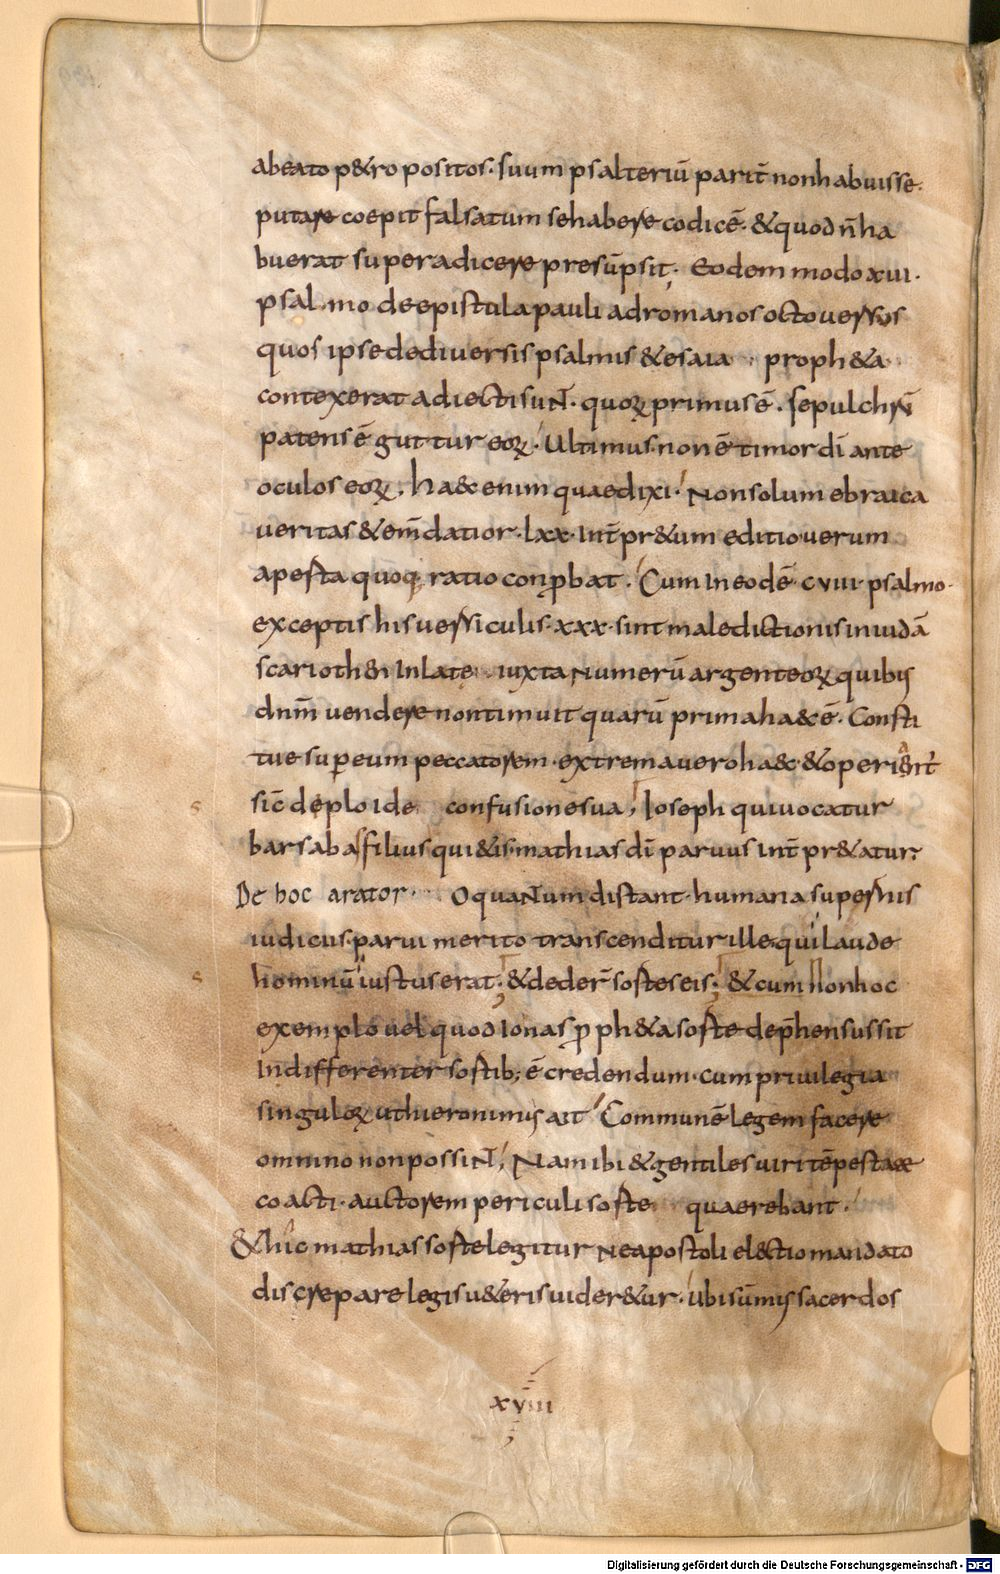 abeato p&ro positos. suum psalteriū parit̄ nonhabuisse.
putare coepit falsatum sehabere codicē. &quod n̄ ha
buerat superadicere presūpsit. Eodem modo xui.
psalmo deepistula pauli adromanos octo uersus
quos ipse dediuersis psalmis &esaia proph&a
contexerat adiectisunt. quoꝝ primus ē. sepulchrū
patens ē guttur eoꝝ. Ultimus. non ē timor dī ante
oculos eoꝝ. haec enim quae dixi. Nonsolum ebraica
ueritas &em̄datior .lxx. Int̄pr&um editio uerum
aperta quoq; ratio conprobat. Cum Ineodē cuiii psalmo.
exceptis his uersiculis .xxx. sint maledictionis iniudā
scarioth &n Inlate iuxta Numerū argenteoꝝ quibus
dnm̄ uendere nontimuit quarū prima haec ē. Consti
tue super eum peccatorem. extrema uero haec &operiant̄
sic̄ deploide confusione sua, Ioseph qui uocatur
barsabas filius qui&is. mathias dī paruus Int̄pr&atur.
De hoc arator. O quantum distant humana supernis
iudiciis. parui merito transcenditur ille. qui laude
hominū iustus erat, &deder̄ sortes eis; &cum Nonhoc
exemplo uel quod Ionas ꝓph&a sorte dep̄hensus sit
Indifferenter sortib; ē credendum. cum priuilegia
singuloꝝ uthieronimus ait Communē legem facere
omnino nonpossint, Nam ibi &gentiles uiri tēpestate
coacti. auctorem periculi sorte quaerebant.
&hic mathias sorte legitur Neapostoli el&ctio mandato
discrepare legis u&eris uider&ur. Ubi sūmus sacerdos
xviii